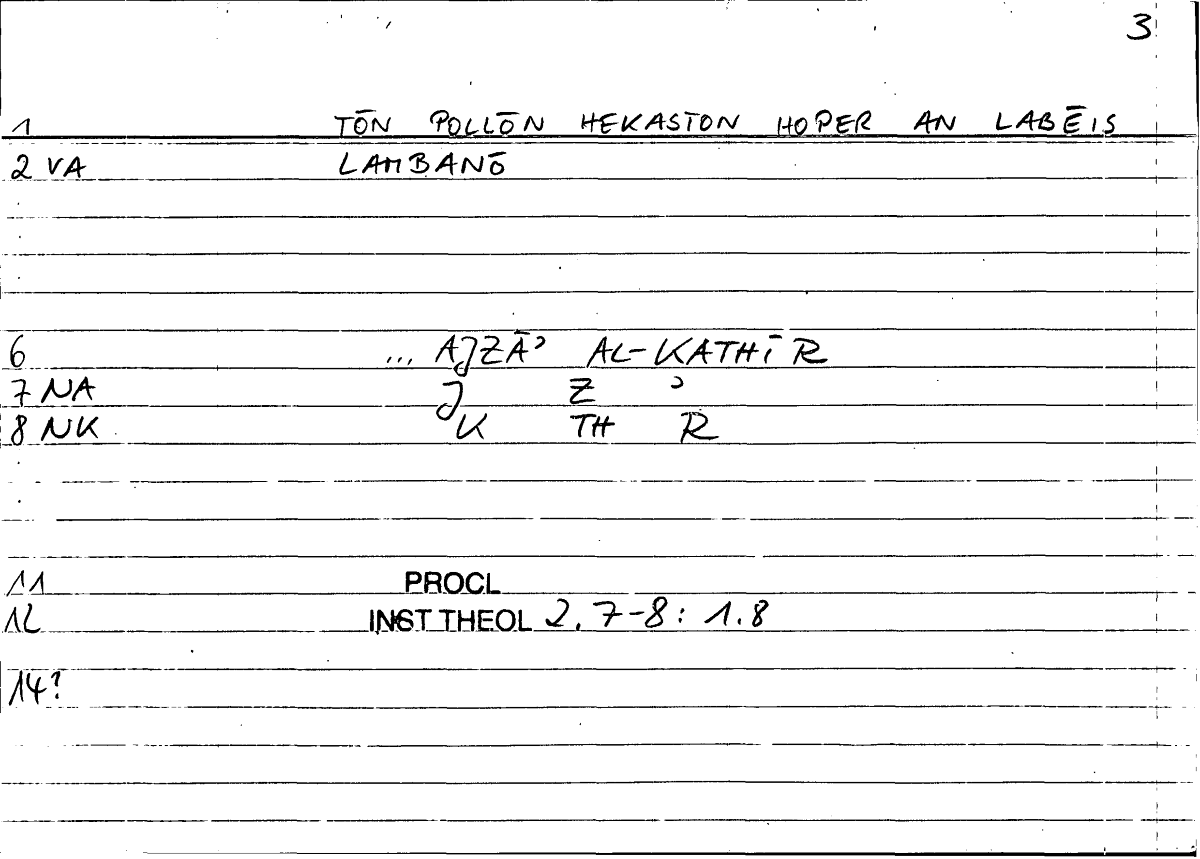 3
1 TŌN POLLŌN HEKASTON HOPER AN LABĒIS
2 VA LAMBANŌ
6 ... AJZĀʾ AL-KATHĪR
7 NA J Z ʾ
8 NK K TH R
11 PROCL
12 INST THEOL 2, 7-8: 1.8
14?